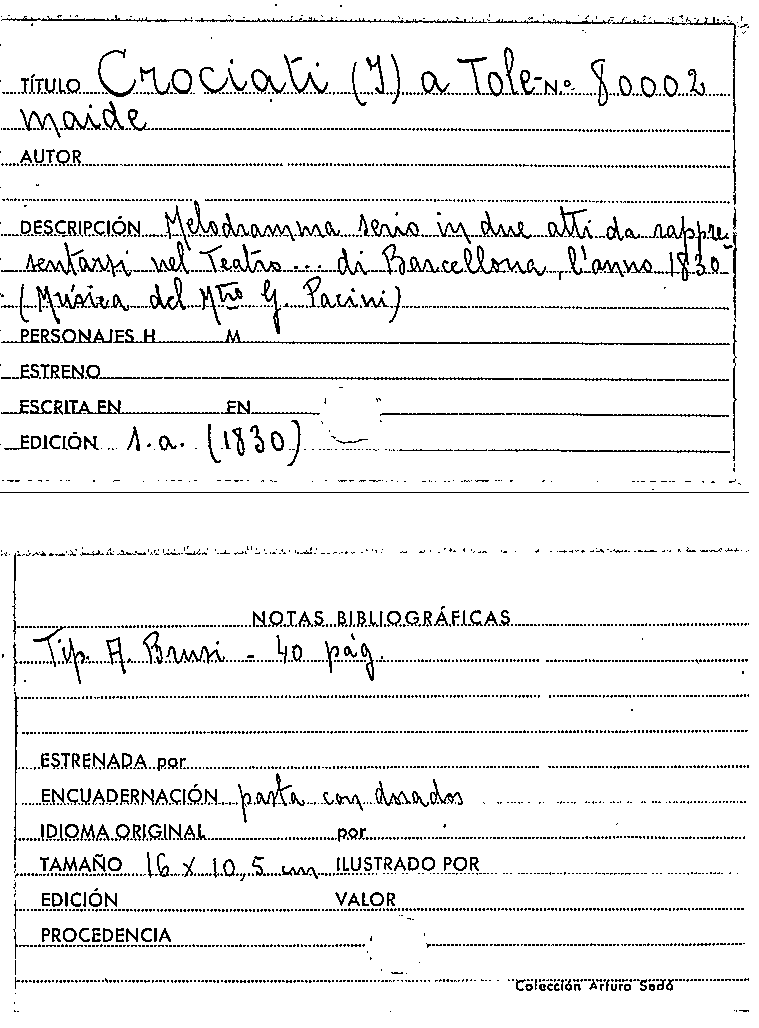 TÍTULO Crociati (I) a Tole- N.º 80002
maide
AUTOR
DESCRIPCIÓN Melodramma serio in due atti da rappre-
sentarsi nel Teatro... di Barcellona, l'anno 1830
(Música del Mtro G. Pacini)
PERSONAJES H M
ESTRENO
ESCRITA EN EN
EDICIÓN s.a. (1830)
NOTAS BIBLIOGRÁFICAS
Tip. A. Brusi - 40 pág.
ESTRENADA por
ENCUADERNACIÓN pasta con dorados
IDIOMA ORIGINAL por
TAMAÑO 16 x 10,5 cm ILUSTRADO POR
EDICIÓN VALOR
PROCEDENCIA
Colección Arturo Sedó